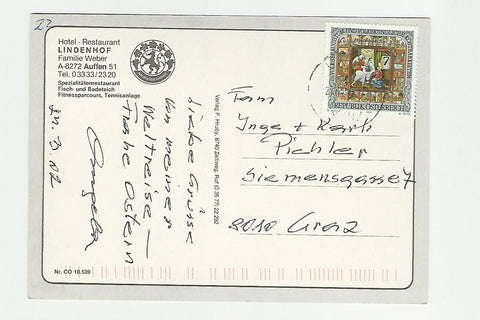 22
Hotel - Restaurant
LINDENHOF
Familie Weber
A-8272 Auffen 51
Tel. 03333/2320
Spezialitätenrestaurant
Fisch- und Badeteich
Fitnessparcours, Tennisanlage
Liebe Grüsse
von meiner
Weltreise —
Frohe Ostern
Angela
Verlag F. Hruby, 8740 Zeltweg, Ruf (0 35 77) 22 292
7
REPUBLIK ÖSTERREICH
Fam
Inge + Karli
Pichler
Siemensgasse 7
8010 Graz
Nr. CO 10.539